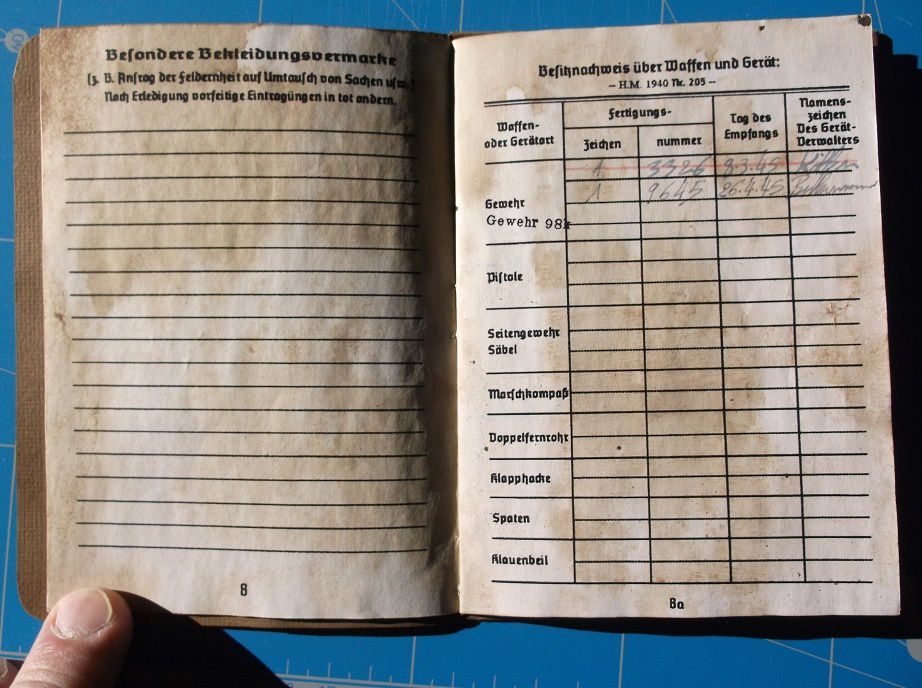 Besondere Bekleidungsvermarke
(z. B. Antrag der Feldernheit auf Umtausch von Sachen usw.)
Nach Erledigung vorseitige Eintragüngen in tot andern.
8
Besitznachweis über Waffen und Gerät:
– H.M. 1940 Nr. 205 –
Waffen-
oder Gerätart
Fertigungs-
Zeichen
nummer
Tag des
Empfangs
Namens-
zeichen
Des Gerät-
Verwalters
1 3326 8.3.45
1 9645 26.4.45
Gewehr
Gewehr 98k
Pistole
Seitengewehr
Säbel
Marschkompaß
Doppelfernrohr
Klapphacke
Spaten
Klauenbeil
8a